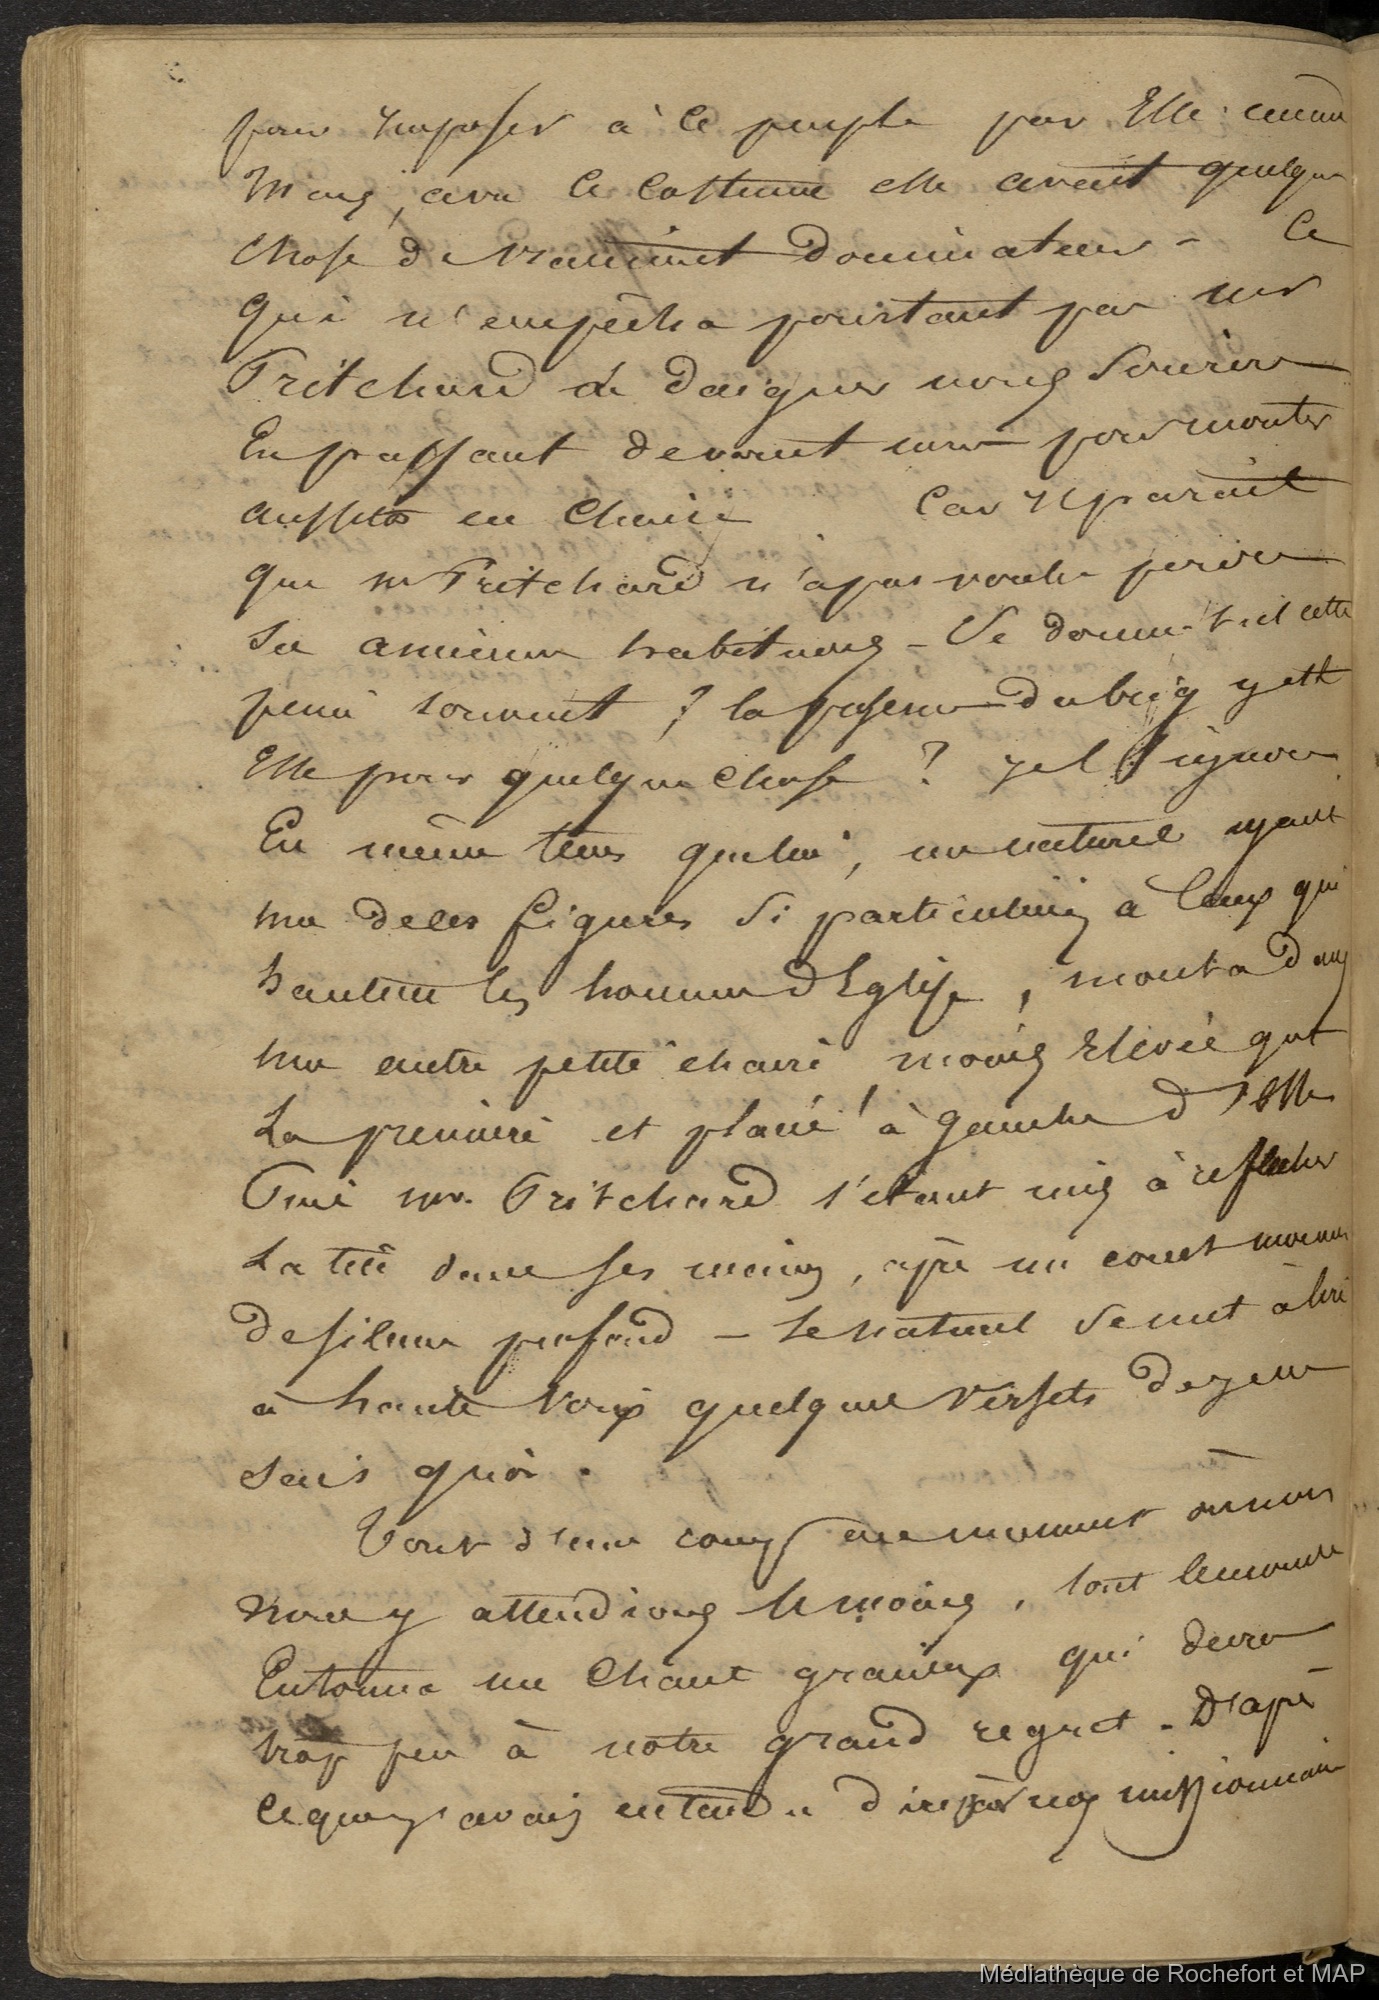 pour imposer à ce peuple par Elle même
Mais, avec ce costume elle avait quelque
chose de vraiment dominateur - Ce
qui n'empêcha pourtant pas mr
Pritchard de daigner nous sourire
En passant devant nous pour monter
aussitot en chaire Car il parait
que mr Pritchard n'a pas voulu perdre
ses anciennes habitudes - Se donne-t-il cette
peine souvent ? la présence du brig y est
Elle pour quelque chose ? je l'ignore
En même tems que lui, un naturel ayant
une de ces figures si particulières à ceux qui
hantent les hommes d'Eglise, monta dans
une autre petite chaire, moins Elevée que
La première et placée à gauche d'Elle
Puis mr. Pritchard s'étant mis à reflechir
La tête dans ses mains, après un court moment
de silence profond - le naturel se mit à lire
à haute voix quelques versets de je ne
sais quoi.
Tout d'un coup au moment où nous
nous y attendions le moins, tout le monde
Entonna un Chant gracieux qui dura
trop peu à notre grand regret. D'après
ce que j'avais entendu dire par nos missionnaires
Médiathèque de Rochefort et MAP